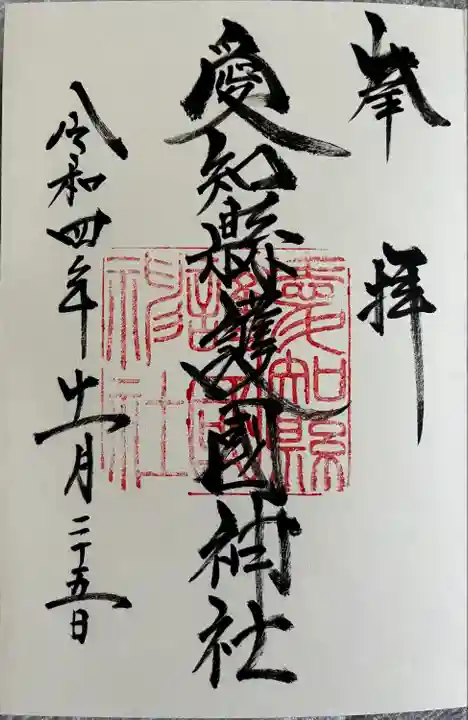 奉拝
愛知縣護國神社
愛知縣護國神社
令和四年十一月二十五日